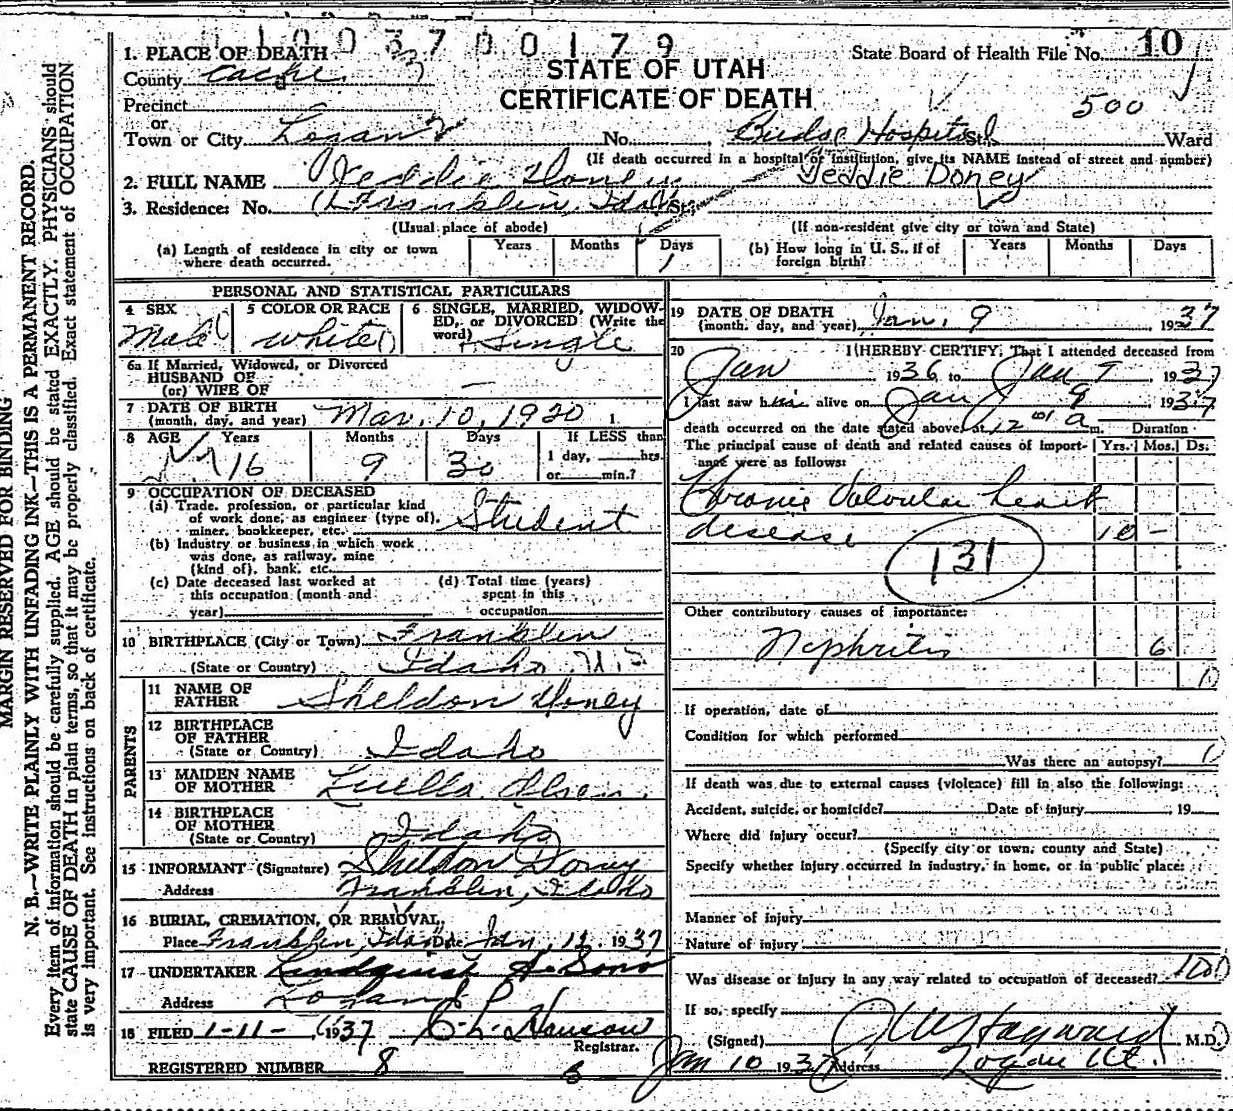 11003700179
1. PLACE OF DEATH
State Board of Health File No. 10
County Cache
STATE OF UTAH
CERTIFICATE OF DEATH
500
Precinct
or
Town or City Logan
No. Budge Hospital St. Ward
(If death occurred in a hospital or institution, give its NAME instead of street and number)
2. FULL NAME Veddie Doney Veddie Doney
3. Residence: No. Franklin, Idaho St.
(Usual place of abode) (If non-resident give city or town and State)
(a) Length of residence in city or town where death occurred. Years Months Days 1
(b) How long in U. S., if of foreign birth? Years Months Days
PERSONAL AND STATISTICAL PARTICULARS
4 SEX Male
5 COLOR OR RACE White
6 SINGLE, MARRIED, WIDOWED, or DIVORCED (Write the word) Single
6a If Married, Widowed, or Divorced
HUSBAND OF
(or) WIFE OF —
7 DATE OF BIRTH
(month, day, and year) Mar. 10, 1920
8 AGE Years 16 Months 9 Days 30 If LESS than
1 day, hrs.
or min.?
9 OCCUPATION OF DECEASED
(a) Trade, profession, or particular kind
of work done, as engineer (type of),
miner, bookkeeper, etc. Student
(b) Industry or business in which work
was done, as railway, mine
(kind of), bank, etc.
(c) Date deceased last worked at
this occupation (month and
year)
(d) Total time (years)
spent in this
occupation
10 BIRTHPLACE (City or Town) Franklin
(State or Country) Idaho
PARENTS
11 NAME OF
FATHER Sheldon Doney
12 BIRTHPLACE
OF FATHER
(State or Country) Idaho
13 MAIDEN NAME
OF MOTHER Luella Olsen
14 BIRTHPLACE
OF MOTHER
(State or Country) Idaho
15 INFORMANT (Signature) Sheldon Doney
Address Franklin, Idaho
16 BURIAL, CREMATION, OR REMOVAL,
Place Franklin, Idaho Date Jan, 12, 1937
17 UNDERTAKER Lindquist & Sons
Address Logan
18 FILED 1-11- 1937 Registrar.
REGISTERED NUMBER 8
6
19 DATE OF DEATH
(month, day, and year) Jan. 9 1937
20 I HEREBY CERTIFY, That I attended deceased from
Jan 1936 to Jan 9 1937
I last saw him alive on Jan 9 1937
death occurred on the date stated above, at 12 01 a m. Duration
The principal cause of death and related causes of importance were as follows: Yrs. Mos. Ds.
Chronic Valvular heart
disease 10 -
131
Other contributory causes of importance:
Nephritis 6
If operation, date of
Condition for which performed
Was there an autopsy?
If death was due to external causes (violence) fill in also the following:
Accident, suicide, or homicide? Date of injury , 19
Where did injury occur?
(Specify city or town, county and State)
Specify whether injury occurred in industry, in home, or in public place:
Manner of injury
Nature of injury
Was disease or injury in any way related to occupation of deceased?
If so, specify
(Signed) Hayward M.D.
Jan 10 1937 Address Logan Ut.
MARGIN RESERVED FOR BINDING
N. B.—WRITE PLAINLY WITH UNFADING INK—THIS IS A PERMANENT RECORD.
Every item of information should be carefully supplied. AGE should be stated EXACTLY. PHYSICIANS should
state CAUSE OF DEATH in plain terms, so that it may be properly classified. Exact statement of OCCUPATION
is very important. See instructions on back of certificate.